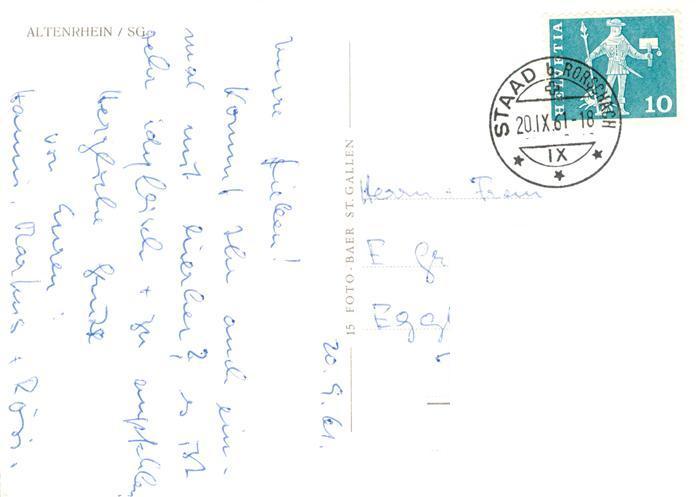 ALTENRHEIN / SG
20.9.61.
Meine Lieben!
Kommt Ihr auch ein-
mal mit hierher? es ist
sehr idyllisch + zu empfehlen
Herzliche Grüsse
von Euren
Hanni, Markus + Rösi.
15 FOTO-BAER ST. GALLEN
HELVETIA
10
STAAD b. RORSCHACH
20.IX.61-18
IX
Herrn + Frau
E Gr
Eggl